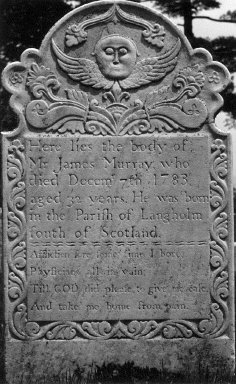 Here lies the body of
Mr James Murray, who
died Decemr 7th, 1783,
aged 32 years, He was born
in the Parish of Langholm
South of Scotland.
Affliction sore long time I bore,
Physicians all in vain,
Till GOD did please to give me ease
And take me home from pain.